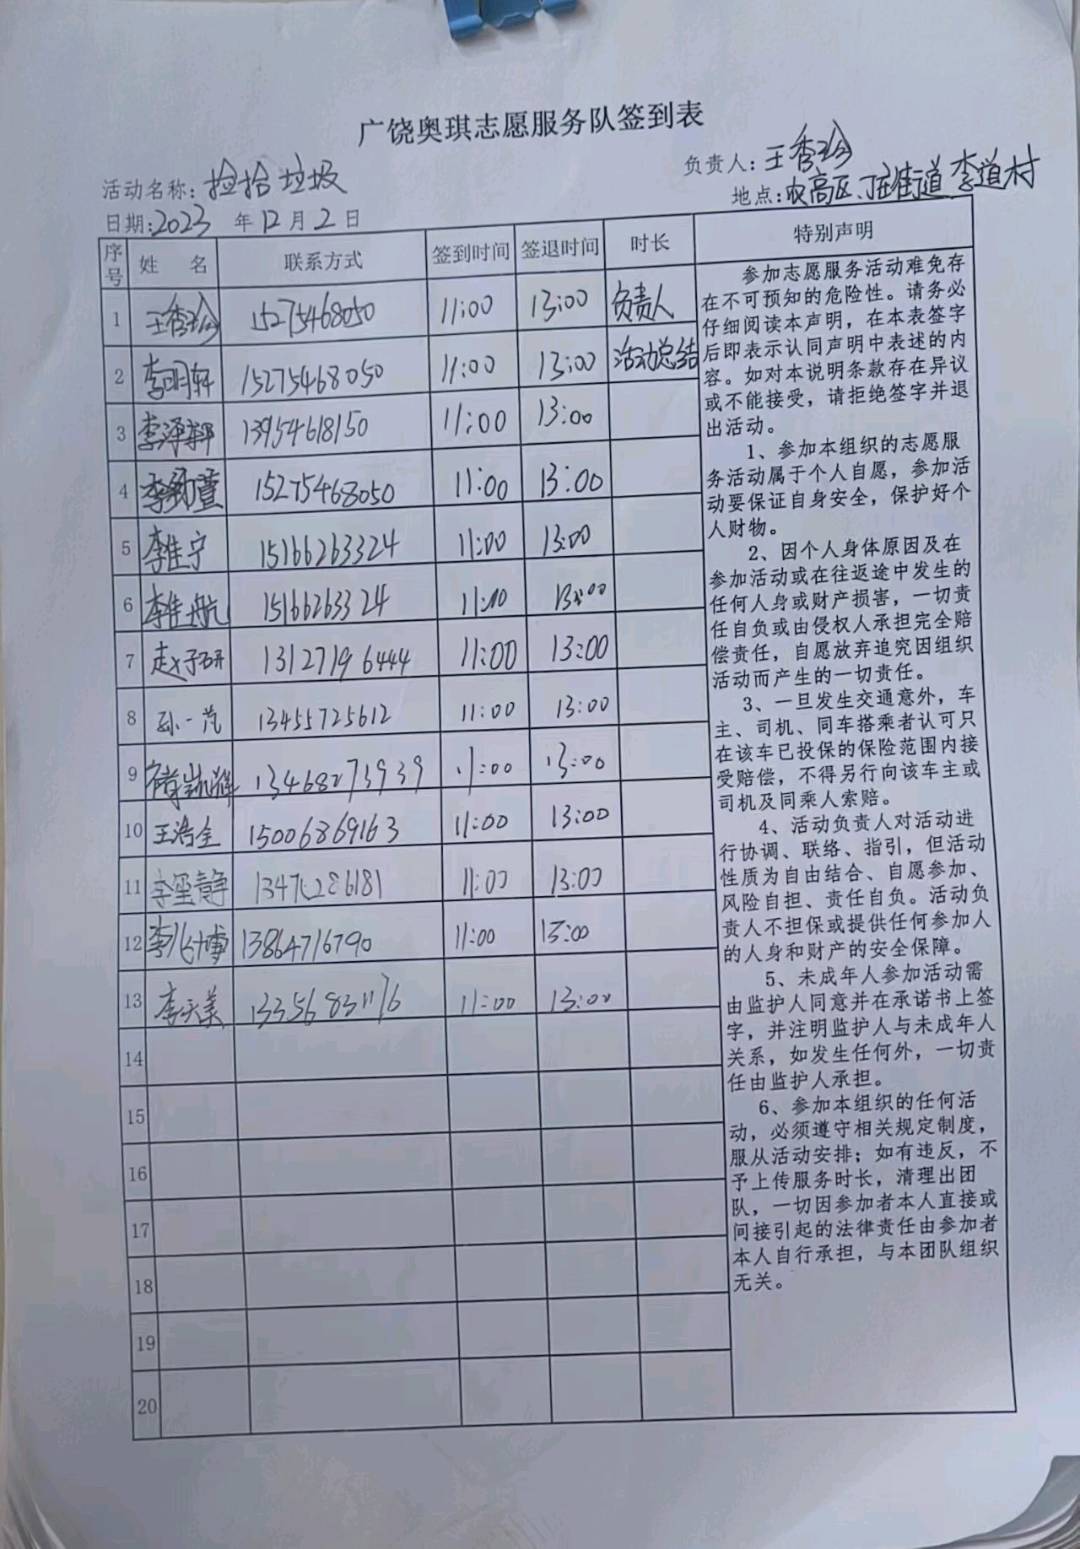 广饶奥琪志愿服务队签到表
活动名称: 捡拾垃圾
负责人: 王秀玲
日期: 2023 年 12 月 2 日
地点: 农高区丁庄街道李道村
序号 姓 名 联系方式 签到时间 签退时间 时长 特别声明
1 王秀玲 15275468050 11:00 13:00 负责人
2 李明轩 15275468050 11:00 13:00 活动总结
3 13954618150 11:00 13:00
4 15275468050 11:00 13:00
5 李佳宁 15166263324 11:00 13:00
6 李佳航 15166263324 11:00 13:00
7 赵子研 13127196444 11:00 13:00
8 孙一 13455725612 11:00 13:00
9 13468273939 11:00 13:00
10 王浩全 15006869163 11:00 13:00
11 11:00 13:00
12 13864716790 11:00 13:00
13 李天美 13356831176 11:00 13:00
14
15
16
17
18
19
20
参加志愿服务活动难免存
在不可预知的危险性。请务必
仔细阅读本声明，在本表签字
后即表示认同声明中表述的内
容。如对本说明条款存在异议
或不能接受，请拒绝签字并退
出活动。
1、参加本组织的志愿服
务活动属于个人自愿，参加活
动要保证自身安全，保护好个
人财物。
2、因个人身体原因及在
参加活动或在往返途中发生的
任何人身或财产损害，一切责
任自负或由侵权人承担完全赔
偿责任，自愿放弃追究因组织
活动而产生的一切责任。
3、一旦发生交通意外，车
主、司机、同车搭乘者认可只
在该车已投保的保险范围内接
受赔偿，不得另行向该车主或
司机及同乘人索赔。
4、活动负责人对活动进
行协调、联络、指引，但活动
性质为自由结合、自愿参加、
风险自担、责任自负。活动负
责人不担保或提供任何参加人
的人身和财产的安全保障。
5、未成年人参加活动需
由监护人同意并在承诺书上签
字，并注明监护人与未成年人
关系，如发生任何外，一切责
任由监护人承担。
6、参加本组织的任何活
动，必须遵守相关规定制度，
服从活动安排；如有违反，不
予上传服务时长，清理出团
队，一切因参加者本人直接或
间接引起的法律责任由参加者
本人自行承担，与本团队组织
无关。